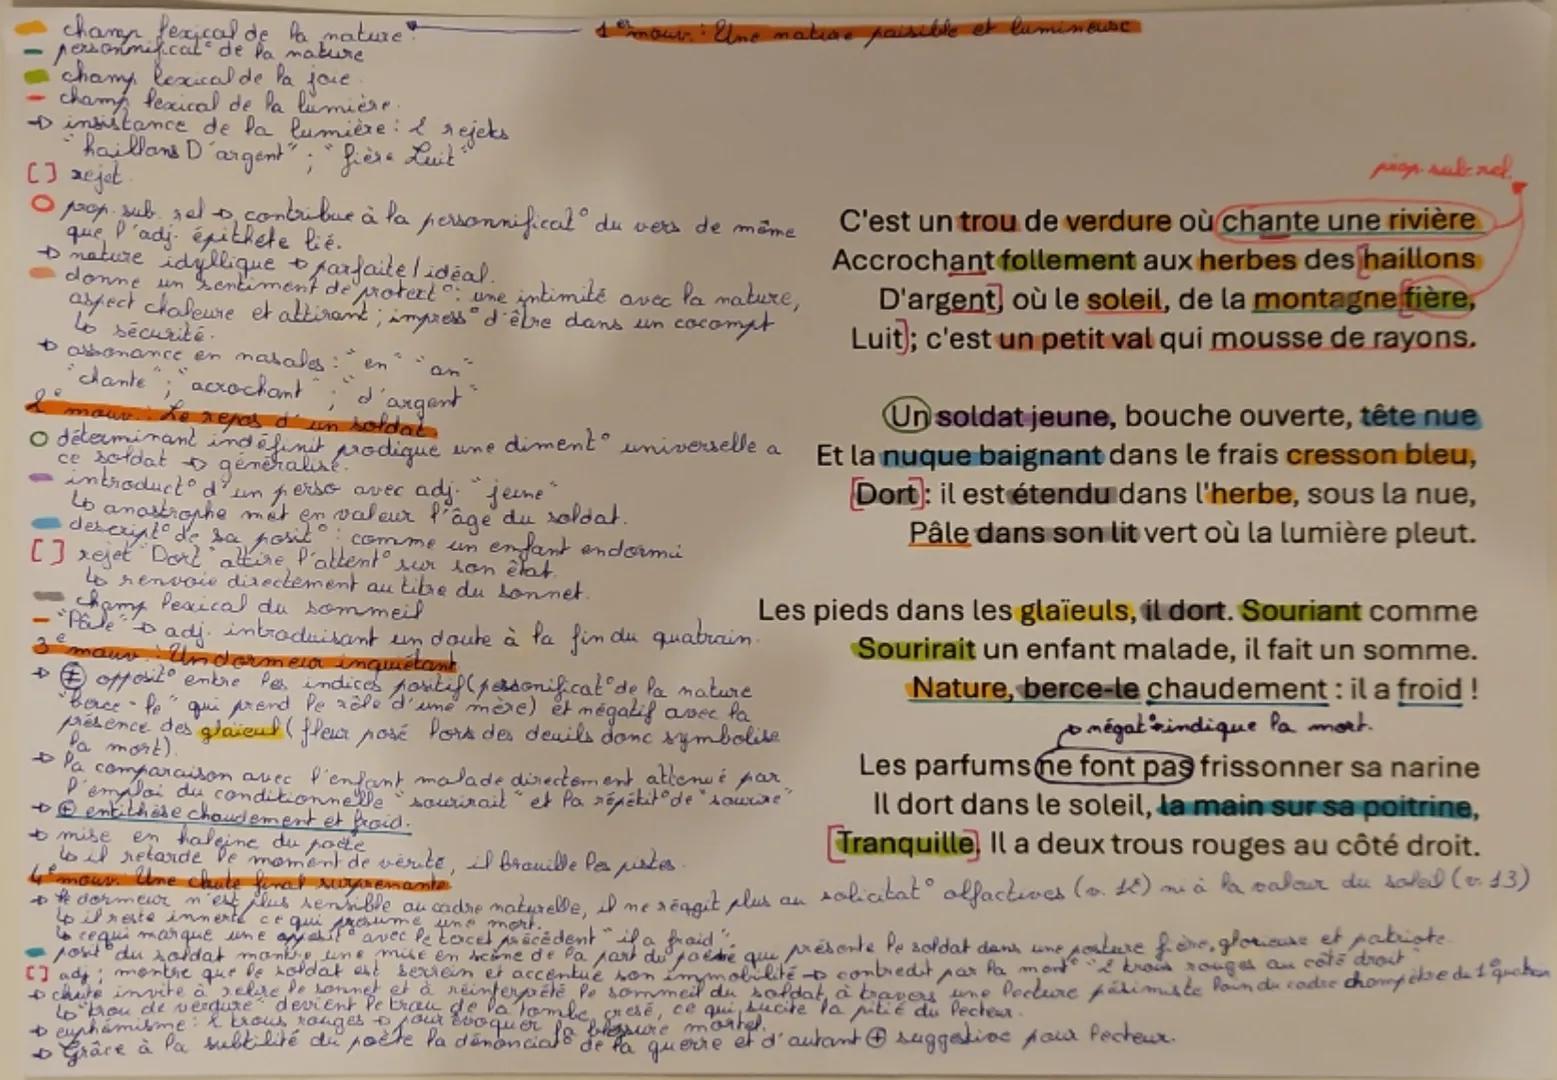 champ lexical de la nature
1er mouv. : Une nature paisible et lumineuse
personnificat° de la nature
champ lexical de la joie
champ lexical de la lumière.
→ insistance de la lumière : 2 rejets
"haillons D'argent" ; "fière Luit"
[ ] rejet
prop. sub. rel → contribue à la personnificat° du vers de même
que l'adj. épithète lié.
→ nature idyllique → parfaite / idéal.
donne un sentiment de protect° : une intimité avec la nature,
aspect chaleure et attirant ; impress° d'être dans un cocompt
↳ sécurité.
→ assonance en nasales : "en" "an"
"chante" ; "acrochant" ; "d'argent"
2e mouv. : Le repos d'un soldat
déterminant indéfinit prodigue une diment° universelle a
ce soldat → généralise.
introduct° d'un perso avec adj. "jeune"
↳ anastrophe met en valeur l'âge du soldat.
descript° de sa posit° : comme un enfant endormi
[ ] rejet "Dort" attire l'attent° sur son état.
↳ renvoie directement au titre du sonnet.
champ lexical du sommeil
"Pâle" → adj. introduisant un doute à la fin du quatrain.
3e mouv : Un dormeur inquiétant
→ opposit° entre les indices positif (personificat° de la nature
"berce-le" qui prend le rôle d'une mère) et négatif avec la
présence des glaïeul (fleur posé lors des deuils donc symbolise
la mort).
→ la comparaison avec l'enfant malade directement attenué par
l'emploi du conditionnelle "sourirait" et la répétit° de "sourire"
→ ⊕ entithèse chaudement et froid.
→ mise en haleine du poète
↳ il retarde le moment de vérité, il brouille les pistes.
prop. sub. rel.
C'est un trou de verdure où chante une rivière
Accrochant follement aux herbes des [haillons
D'argent], où le soleil, de la montagne [fière,
Luit]; c'est un petit val qui mousse de rayons.
Un soldat jeune, bouche ouverte, tête nue
Et la nuque baignant dans le frais cresson bleu,
[Dort] : il est étendu dans l'herbe, sous la nue,
Pâle dans son lit vert où la lumière pleut.
Les pieds dans les glaïeuls, il dort. Souriant comme
Sourirait un enfant malade, il fait un somme.
Nature, berce-le chaudement : il a froid !
négat° indique la mort.
Les parfums ne font pas frissonner sa narine
Il dort dans le soleil, la main sur sa poitrine,
[Tranquille]. Il a deux trous rouges au côté droit.
4e mouv. Une chute final surprenante
→ le dormeur n'est plus sensible au cadre naturelle, il ne réagit plus au solicitat° olfactives (v. 12) ni à la valeur du soleil (v. 13)
↳ il reste innerte ce qui présume une mort.
↳ ce qui marque une opposit° avec le tercet précédent "il a froid".
posit° du soldat montre une mise en scène de la part du poète qui présente le soldat dans une posture fière, glorieuse et patriote.
[ ] adj ; montre que le soldat est serrein et accentue son immobilité → contredit par la mort "2 trous rouges au côté droit"
→ chute invite à relire le sonnet et à réinterprété le sommeil du soldat, à travers une lecture pésimiste loin du cadre champêtre du 1e quatrain
↳ "trou de verdure" devient le trou de la tombe cresé, ce qui sucite la pitié du lecteur.
→ euphémisme : 2 trous rouges → pour évoquer la blessure mortel.
→ Grâce à la subtilité du poète la dénonciat° de la guerre et d'autant ⊕ suggestive pour lecteur.